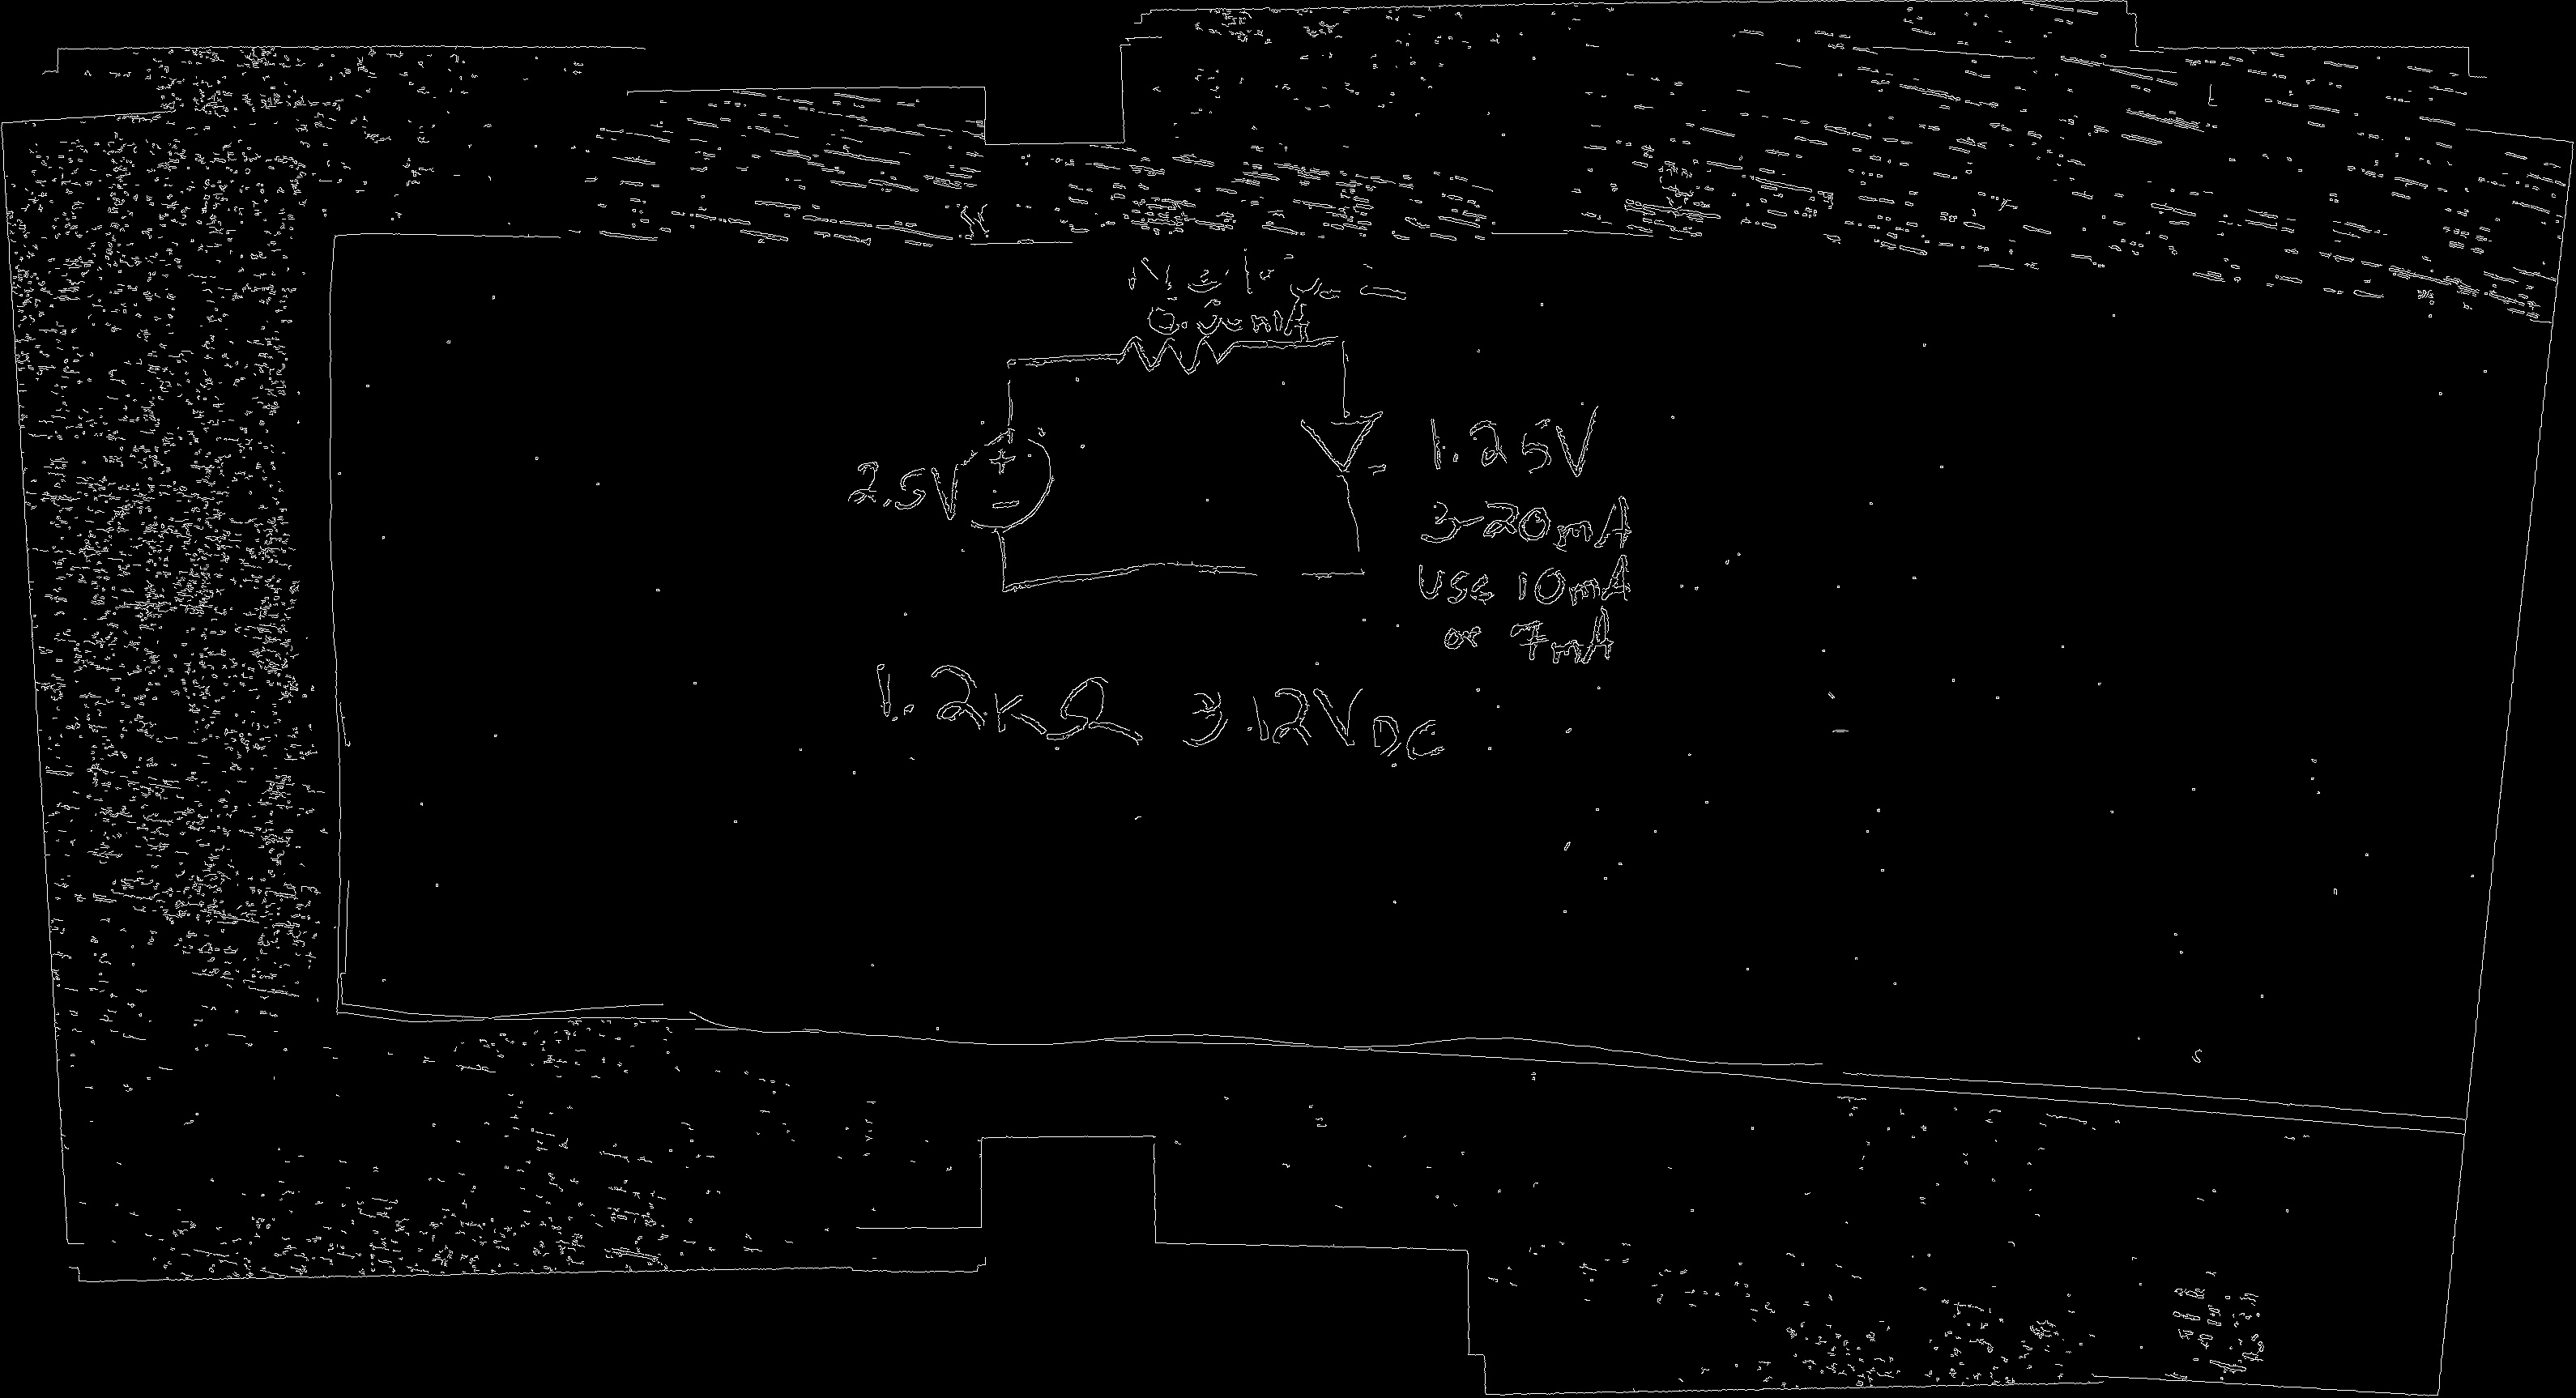 2.5V
+
-
1.25V
3-20mA
use 10mA
or 7mA
1.2KΩ 3.12VDC